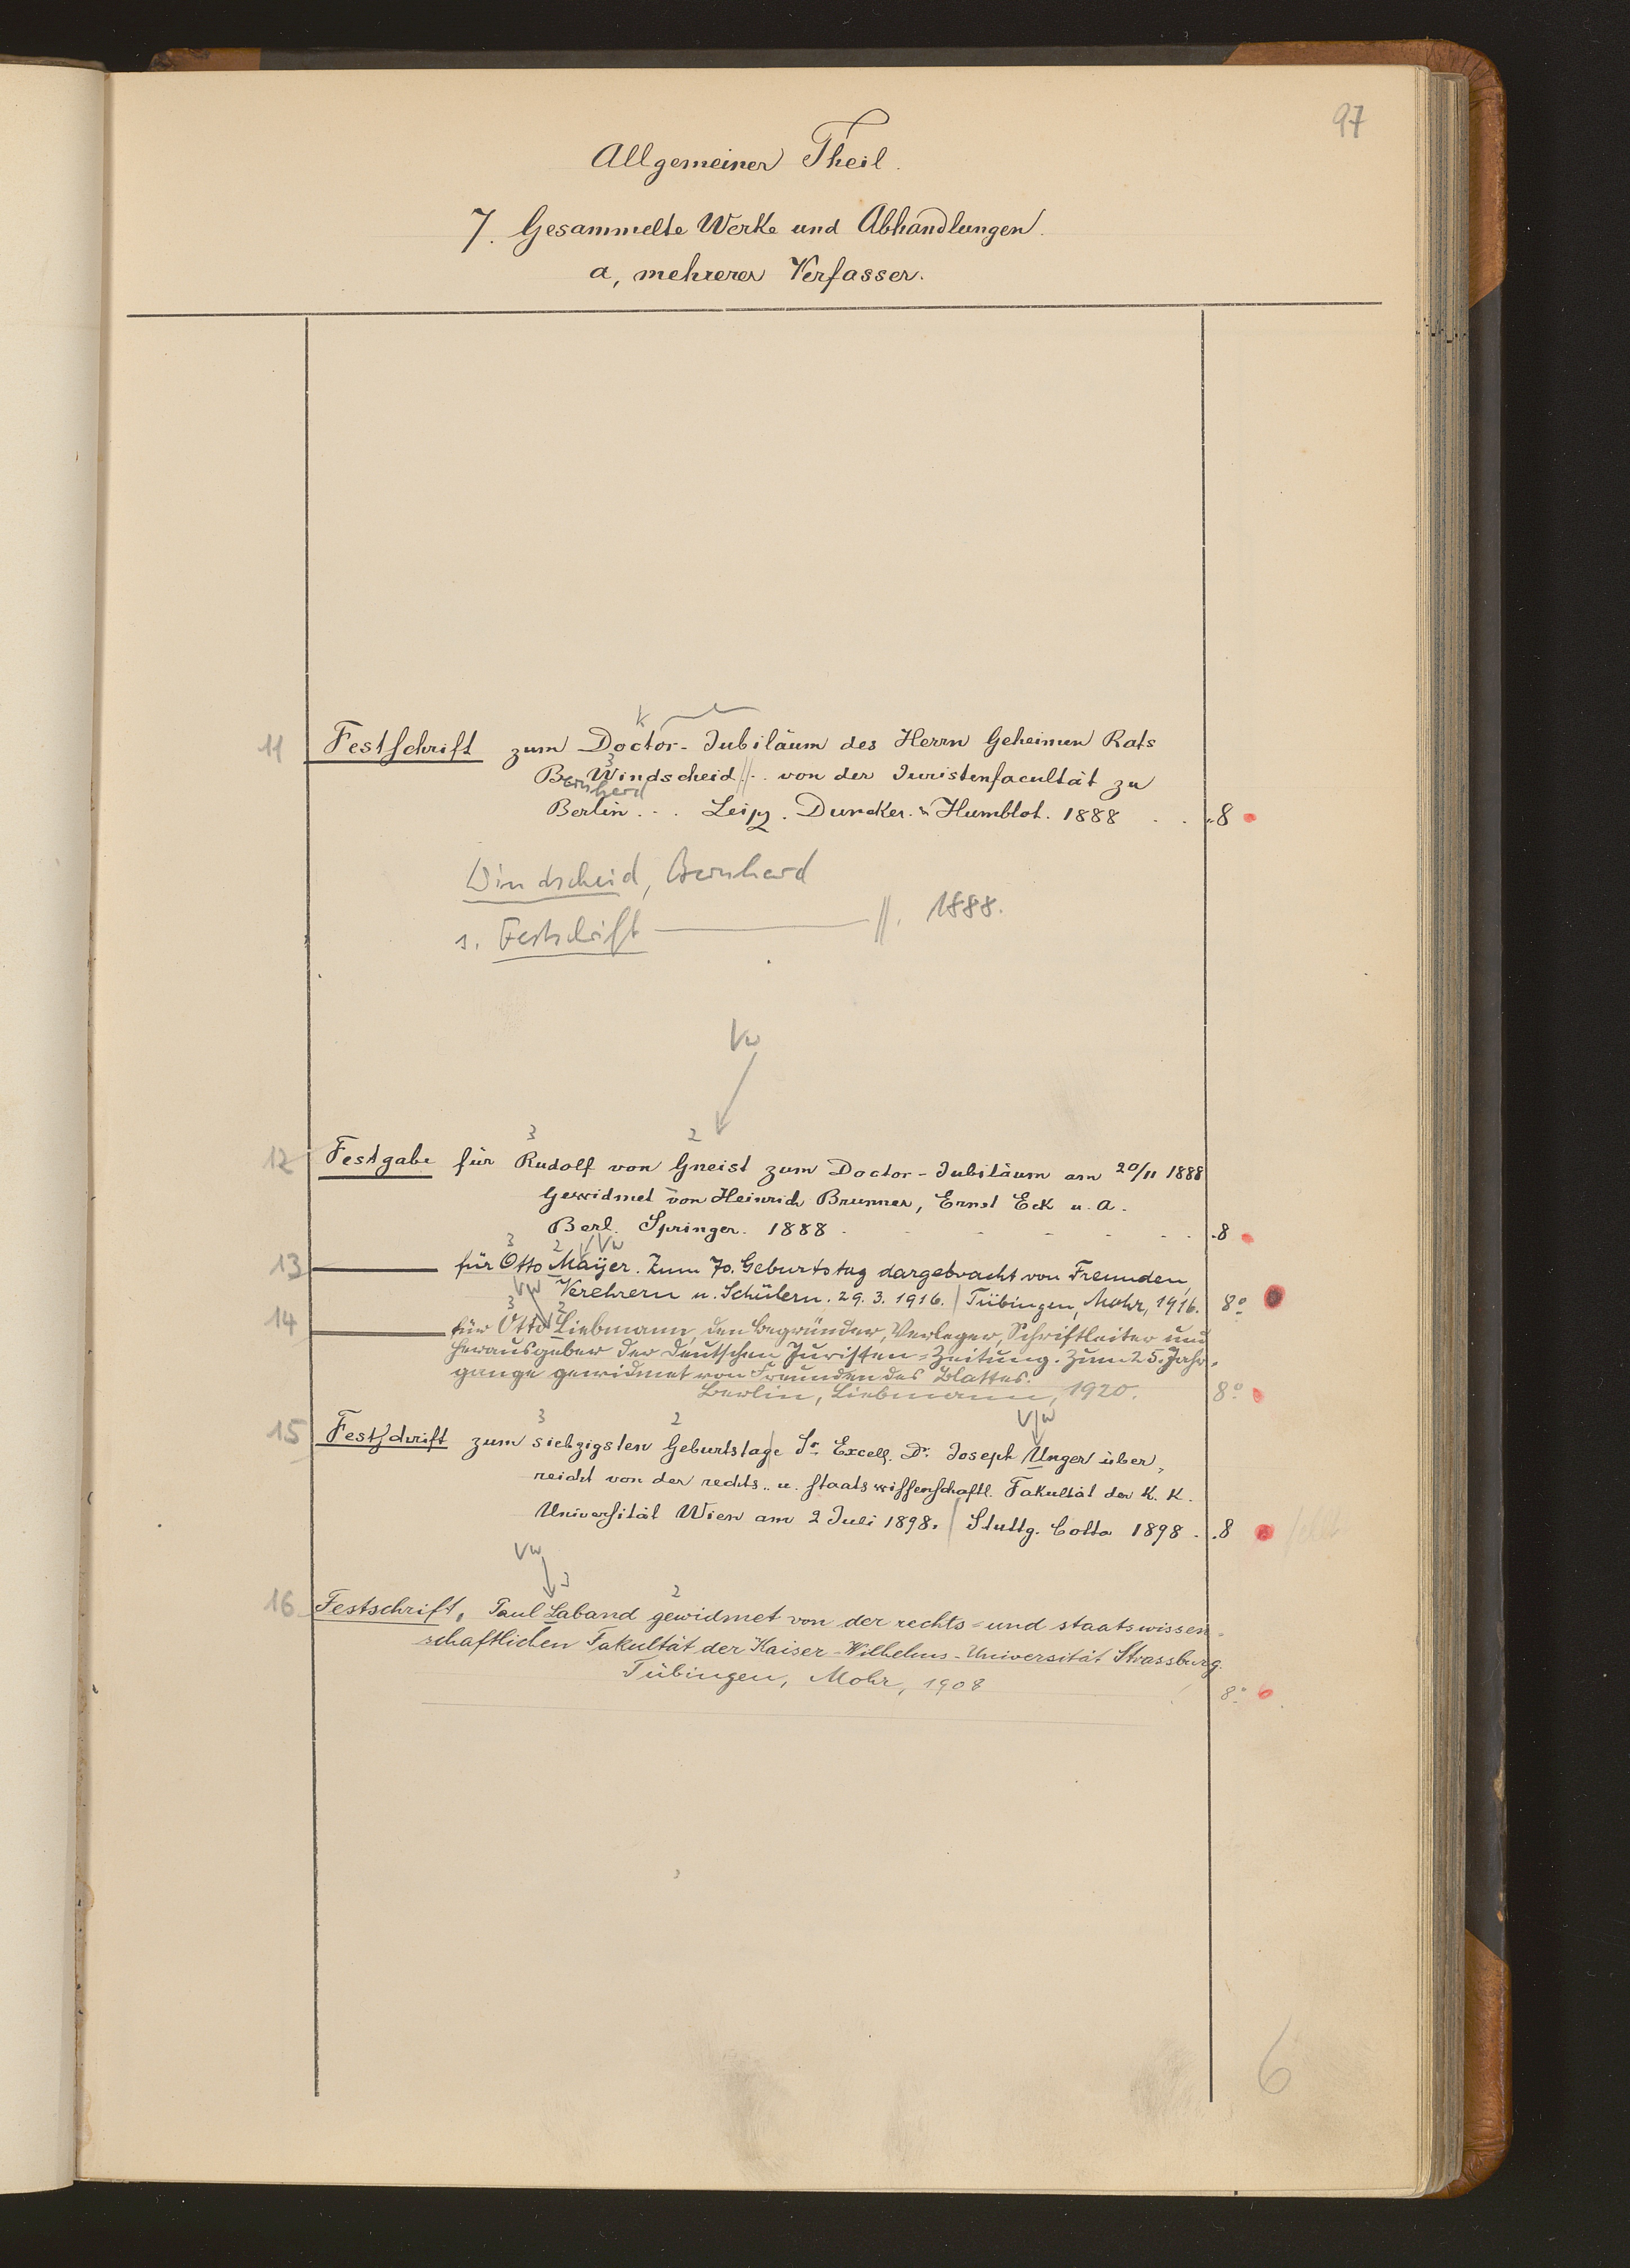 97
Allgemeiner Theil.
7. Gesammelte Werke und Abhandlungen.
a, mehrerer Verfasser.
K
11 Festschrift zum Doctor-Jubiläum des Herrn Geheimen Rats
3
B. Windscheid // . . von der Juristenfacultät zu
Bernhard
Berlin . . . Leipz. Duncker. & Humblot. 1888 . . 8
Windscheid, Bernhard
s. Festschrift —— //. 1888.
Vw
3 2
12 Festgabe für Rudolf von Gneist zum Doctor-Jubiläum am 20/11 1888
Gewidmet von Heinrich Brunner, Ernst Eck u. A.
Berl. Springer. 1888 . - - - - . . .8
3 2 Vw
13 —— für Otto Mayer. Zum 70. Geburtstag dargebracht von Freunden,
Verehrern u. Schülern. 29. 3. 1916. | Tübingen, Mohr, 1916. 8º
Vw
3 2
14 —— für Otto Liebmann, den Begründer, Verleger, Schriftleiter und
Herausgeber der Deutschen Juristen=Zeitung. Zum 25. Jahr-
gange gewidmet von Freunden des Blattes.
Berlin, Liebmann, 1920. 8º
3 2 VW
15 Festschrift zum siebzigsten Geburtstage Sr. Excell. Dr. Joseph Unger über-
reicht von der rechts- u. staatswissenschaftl. Fakultät der K. K.
Universität Wien am 2 Juli 1898. | Stuttg. Cotta 1898 . .8
Vw
3 2
16 Festschrift, Paul Laband gewidmet von der rechts= und staatswissen=
schaftlichen Fakultät der Kaiser-Wilhelms-Universität Strassburg.
Tübingen, Mohr, 1908 8º
6